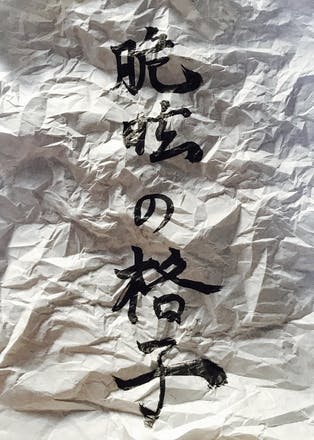 脆眩の格子